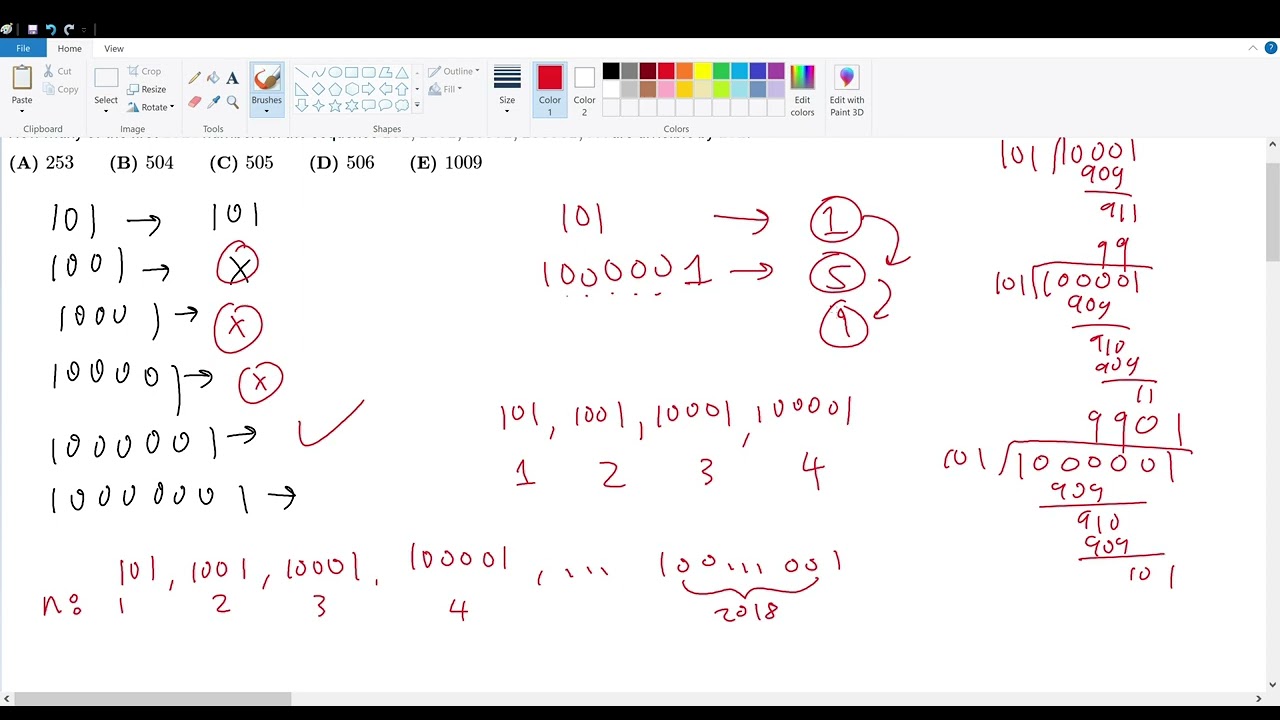 File Home View
Paste Cut Copy Clipboard
Select Crop Resize Rotate Image
A Tools
Brushes
Shapes Outline Fill
Size
Color 1 Color 2 Colors
Edit colors
Edit with Paint 3D
(A) 253 (B) 504 (C) 505 (D) 506 (E) 1009
101 → 101
1001 → X
10001 → X
100001 → X
1000001 →
10000001 →
101 → 1
1000001 → 5
9
101, 1001, 10001, 100001
1 2 3 4
101, 1001, 10001, 100001, .... 100...001
n: 1 2 3 4 2018
101 10001
909
911
99
101 100001
909
910
909
11
9901
101 1000001
909
910
909
101